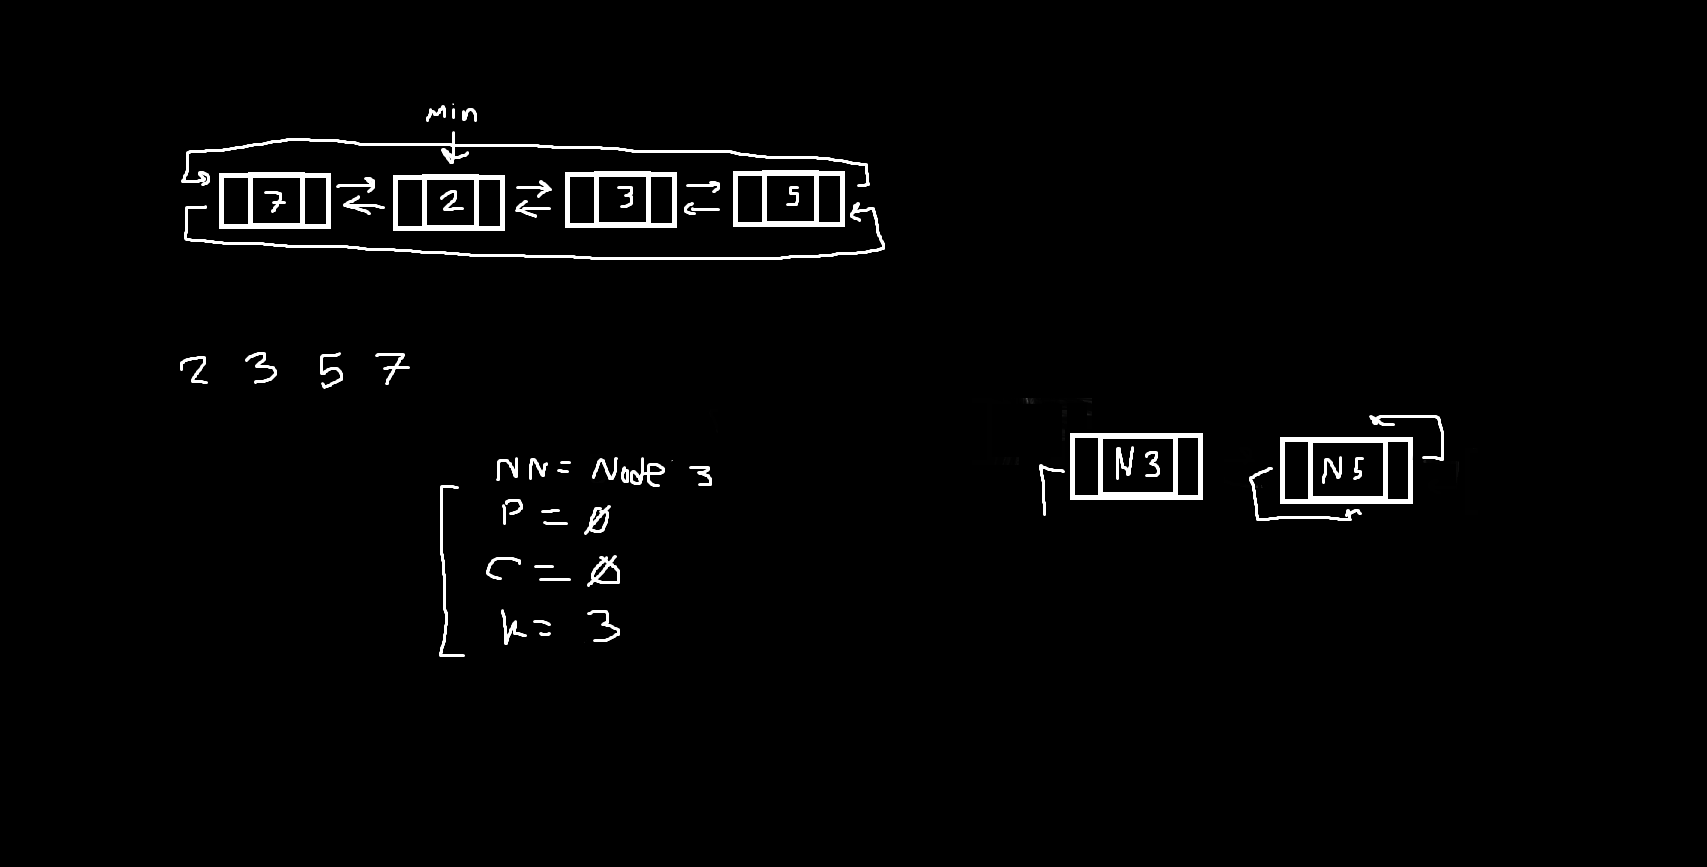 Min
7 2 3 5
2 3 5 7
NN = Node 3
P = Ø
C = Ø
K = 3
N3 N5